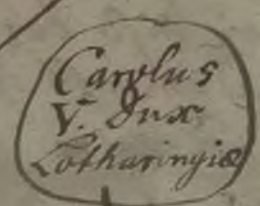 Carolus
V. Dux
Lotharingiæ